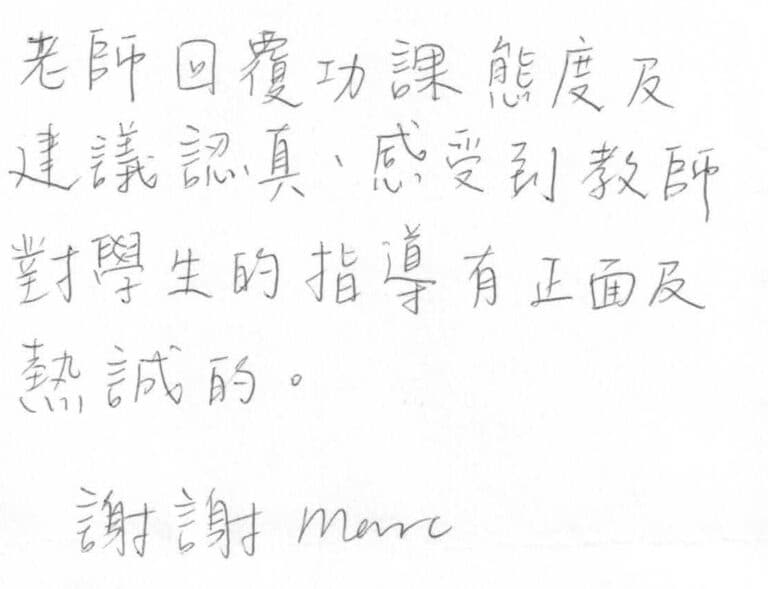 老師回覆功課態度及
建議認真、感受到教師
對學生的指導有正面及
熱誠的。
謝謝 Marc